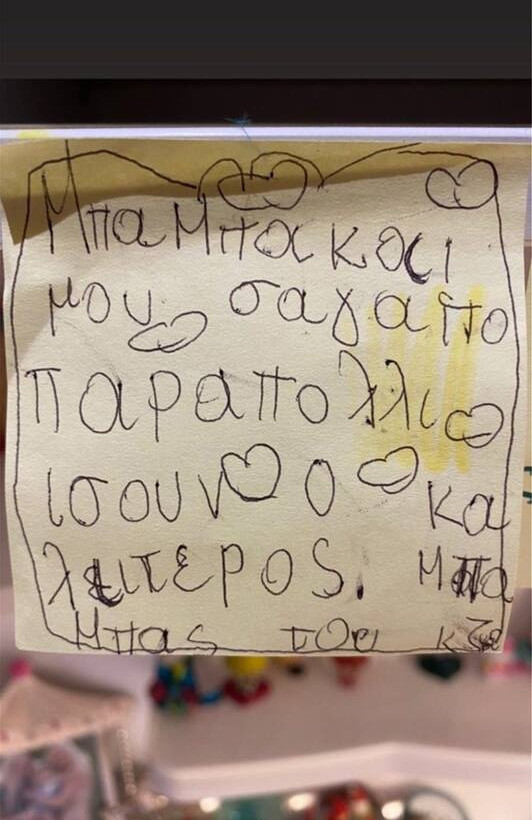 Μπαμπακοαι
μου σαγαπο
παραπολλι
ισουν ο κα
λειτεροs. Μπα
μπας του